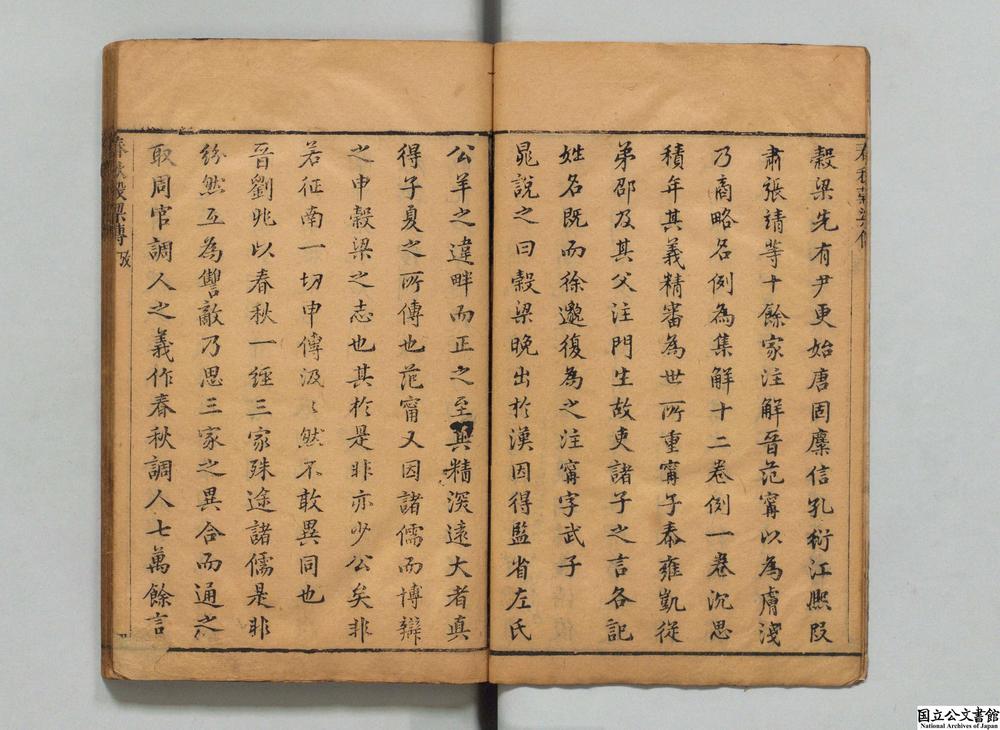 穀梁先有尹更始唐固麋信孔衍江熈段
肅張靖等十餘家注解晉范甯以為膚淺
乃商略名例為集解十二卷例一卷沉思
積年其義精審為世所重甯子泰雍凱從
弟邵及其父注門生故吏諸子之言各記
姓名既而徐邈復為之注甯字武子
晁說之曰穀梁晚出於漢因得監省左氏
公羊之違畔而正之至其精深遠大者真
得子夏之所傳也范甯又因諸儒而博辯
之申穀梁之志也其於是非亦少公矣非
若征南一切申傳汲〻然不敢異同也
晉劉兆以春秋一經三家殊途諸儒是非
紛然互為讐敵乃思三家之異合而通之
取周官調人之義作春秋調人七萬餘言
春秋穀梁傳 攷
国立公文書館
National Archives of Japan